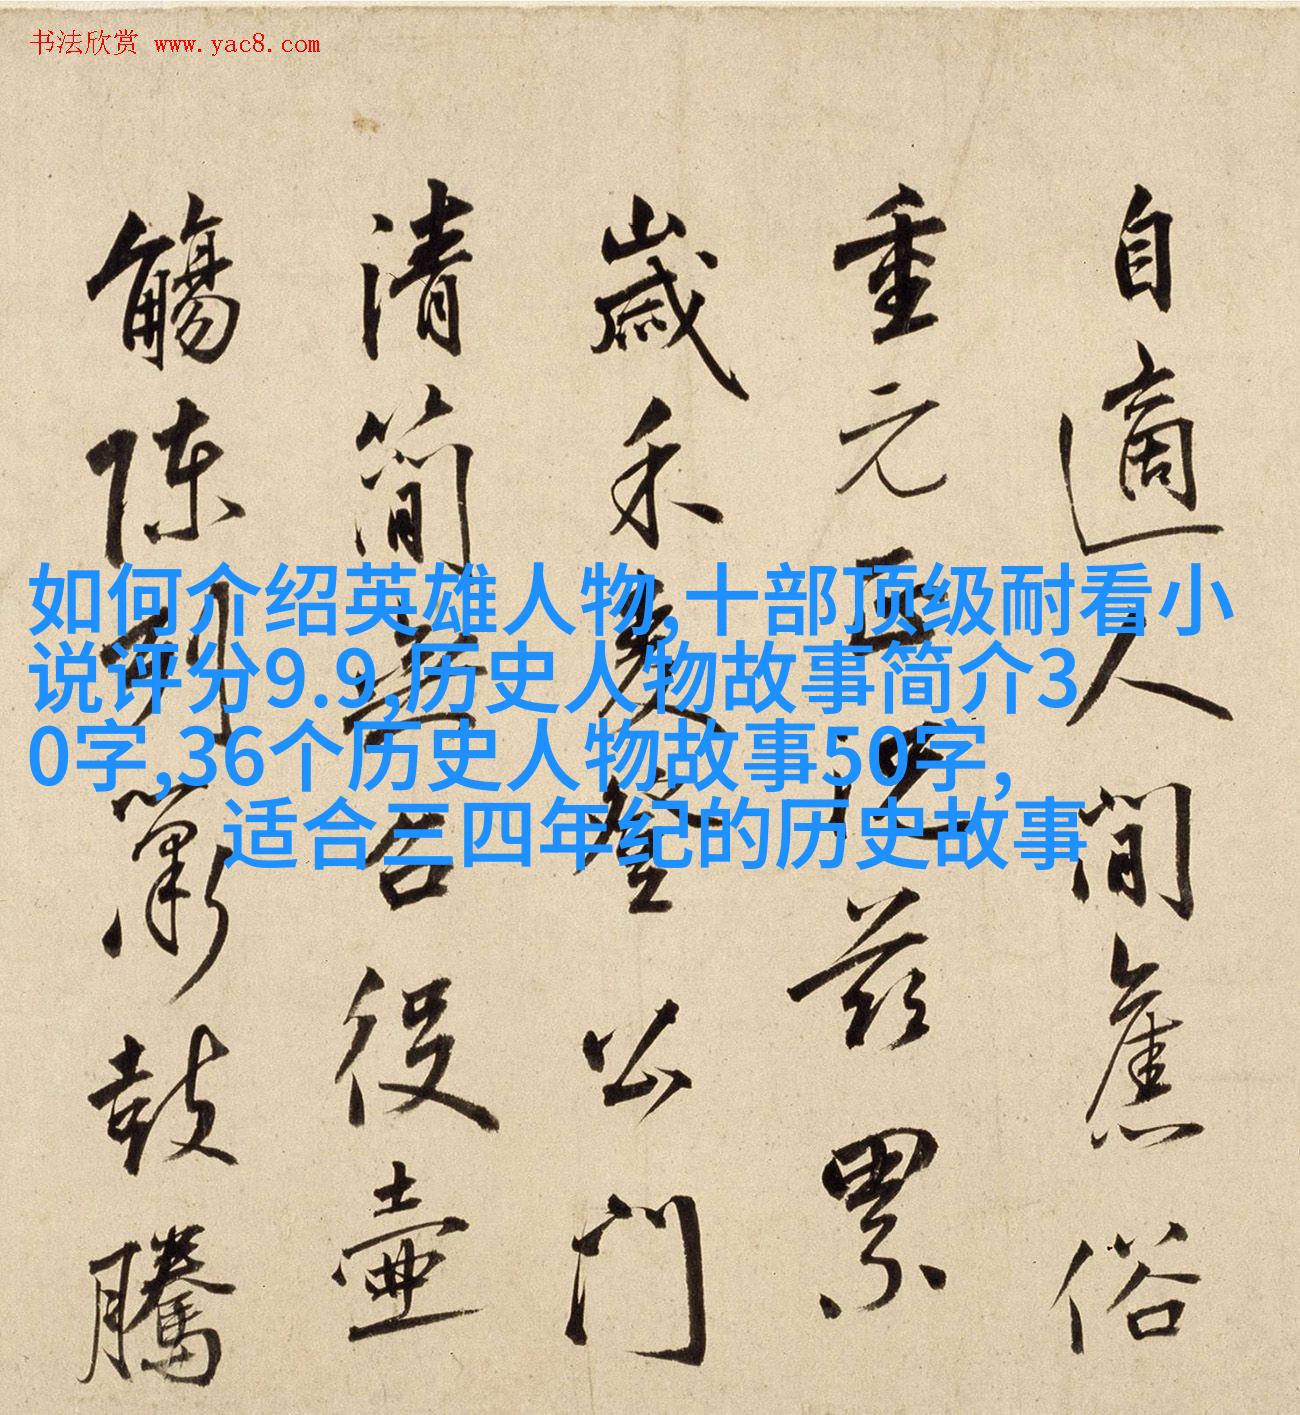 书法欣赏 www.yac8.com
如何介绍英雄人物,十部顶级耐看小
说评分9.9,历史人物故事简介3
0字,36个历史人物故事50字,
适合三四年纪的历史故事
自適人間舊俗
重元正况茲累
歲禾麥登公門
清簡無役壺
觴陳列簫鼓騰